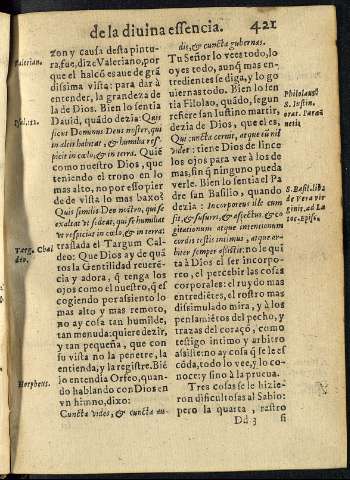 de la diuina essencia. 421
Valerian.
zon y causa desta pintu-
ra, fue, dize Valeriano, por
que el halcõ es aue de grã
dissima vista: para dar à
entender, la grandeza de
la de Dios. Bien lo sentia
Psal. 12.
Dauid, quãdo dezia: Quis
sicut Dominus Deus noster, qui
in altis habitat, & humilia res-
picit in cælo, & in terra. Quiē
como nuestro Dios, que
teniendo el trono en lo
mas alto, no por esso pier
de de vista lo mas baxo?
Quis similis Deo nostro, qui se
exaltat vt sedeat, qui se humiliat
vt respiciat in cælo, & in terra:
Targ. Chal
deo.
traslada el Targum Cal-
deo: Que Dios ay de quã
tos la Gentilidad reuerē-
cia y adora, q̃ tenga los
ojos como el nuestro, q̃ es
cogiendo por assiento lo
mas alto y mas remoto,
no ay cosa tan humilde,
tan menuda: quiere dezir,
y tan pequeña, que con
su vista no la penetre, la
entienda, y la registre. Biē
Morpheus.
lo entendia Orfeo, quan-
do hablando con Dios en
vn himno, dixo:
Cuncta vides, & cuncta au-
dis, & cuncta gubernas.
Tu Señor lo vees todo, lo
oyes todo, aunq̃ mas en-
tredientes se diga, y lo go
uiernas todo. Bien lo sen
Philolaus
S. Iustin,
orat. Paræ
netic.
tia Filolao, quãdo, segun
refiere san Iustino martir,
dezia de Dios, que el es,
Qui cuncta cernit, atque videt
videt: tiene Dios de lince
los ojos para ver à los de
mas, sin q̃ ninguno pueda
verle. Bien lo sentia el Pa
S. Basil. lib.
de Vera vir
ginit. ad La
toc. Episc.
dre san Basilio, quando
dezia: Incorporeus ille cum
sit, & susurri, & aspectus, & co
gitationum atque intentionum
cordis testis intimus, atque ar-
biter semper assistit: no le qui
ta à Dios el ser incorpo-
reo, el percebir las cosas
corporales: el ruydo mas
entrediētes, el rostro mas
dissimulado mira, y à los
pensamiētos del pecho, y
trazas del coraçõ, como
testigo intimo y arbitro
assiste: no ay cosa q̃ se le es
cõda, todo lo vee, y lo co-
noce: y sino à la prueua.
Tres cosas se le hizie-
ron dificultosas al Sabio:
pero la quarta, rastro
Dd 3 si